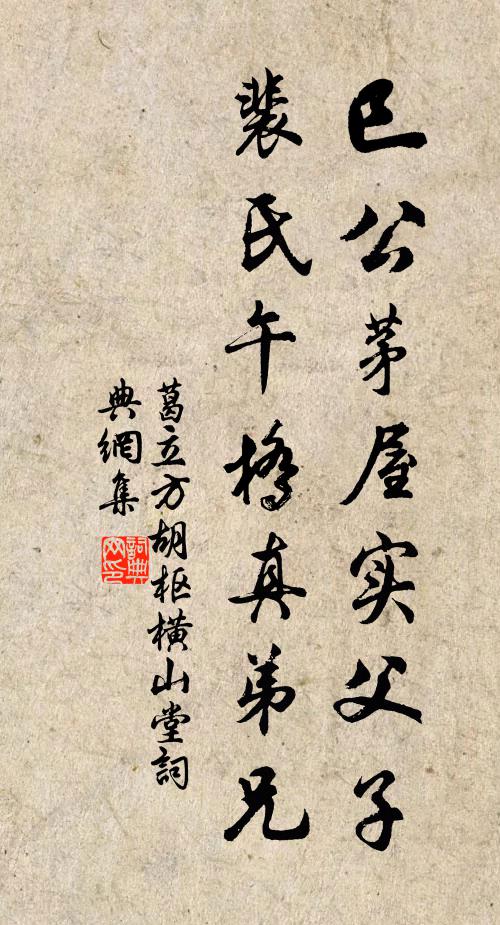 巳公茅屋实父子
裴氏午橋真弟兄
葛立方胡枢横山堂詞
典網集
詞典网印